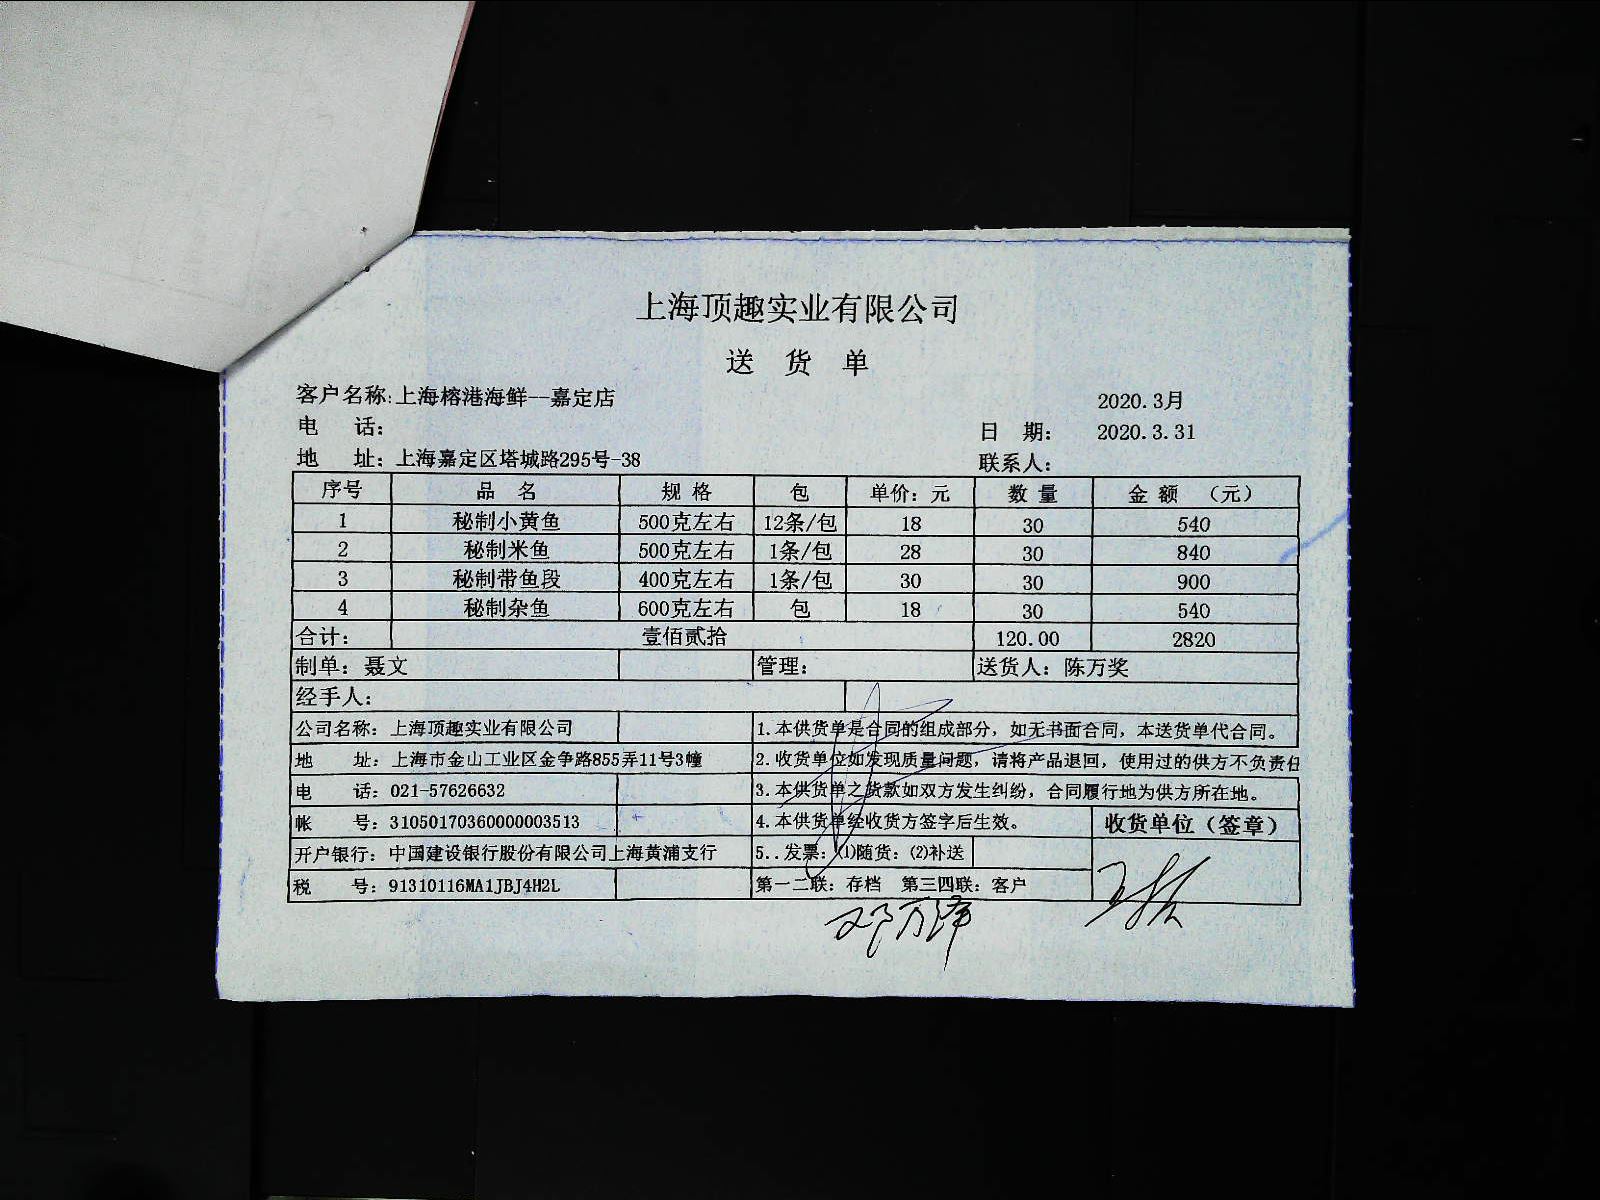 上海顶趣实业有限公司
送 货 单
客户名称:上海榕港海鲜--嘉定店
2020.3月
电 话:
日 期: 2020.3.31
地 址: 上海嘉定区塔城路295号-38
联系人:
序号 品 名 规 格 包 单价: 元 数 量 金 额 (元)
1 秘制小黄鱼 500克左右 12条/包 18 30 540
2 秘制米鱼 500克左右 1条/包 28 30 840
3 秘制带鱼段 400克左右 1条/包 30 30 900
4 秘制杂鱼 600克左右 包 18 30 540
合计: 壹佰贰拾 120.00 2820
制单: 聂文 管理: 送货人: 陈万奖
经手人:
公司名称: 上海顶趣实业有限公司 1.本供货单是合同的组成部分, 如无书面合同, 本送货单代合同。
地 址: 上海市金山工业区金争路855弄11号3幢 2.收货单位如发现质量问题, 请将产品退回, 使用过的供方不负责任
电 话: 021-57626632 3.本供货单之货款如双方发生纠纷, 合同履行地为供方所在地。
帐 号: 31050170360000003513 4.本供货单经收货方签字后生效。 收货单位（签章）
开户银行: 中国建设银行股份有限公司上海黄浦支行 5..发票: ⑴随货: ⑵补送
税 号: 91310116MA1JBJ4H2L 第一二联: 存档 第三四联: 客户